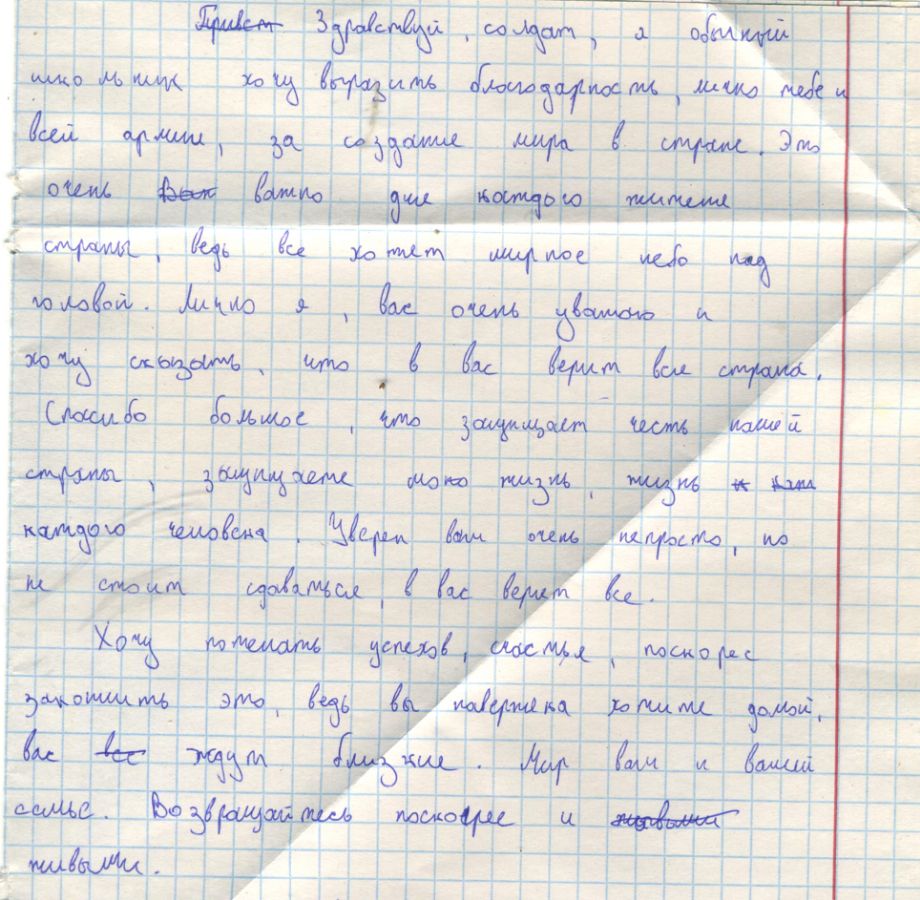 Привет Здравствуй, солдат, я обычный
школьник хочу выразить благодарность, лично тебе и
всей армии, за создание мира в стране. Это
очень важно для каждого жителя
страны, ведь все хотят мирное небо над
головой. Лично я, вас очень уважаю и
хочу сказать, что в вас верит вся страна.
Спасибо большое, что защищает честь нашей
страны, защищаете мою жизнь, жизнь
каждого человека. Уверен вам очень непросто, но
не стоит сдаваться, в вас верят все.
Хочу пожелать успехов, счастья, поскорее
закончить это, ведь вы наверняка хотите домой,
вас все ждут близкие. Мир вам и вашей
семье. Возвращайтесь поскорее и живыми
живыми.